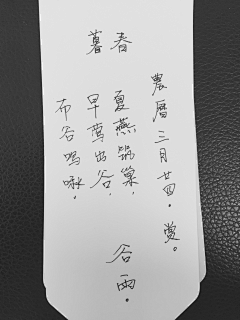 春暮
農曆三月廿四。
夏燕筑巢，
早莺出谷，
布谷鸣啾。
谷雨。